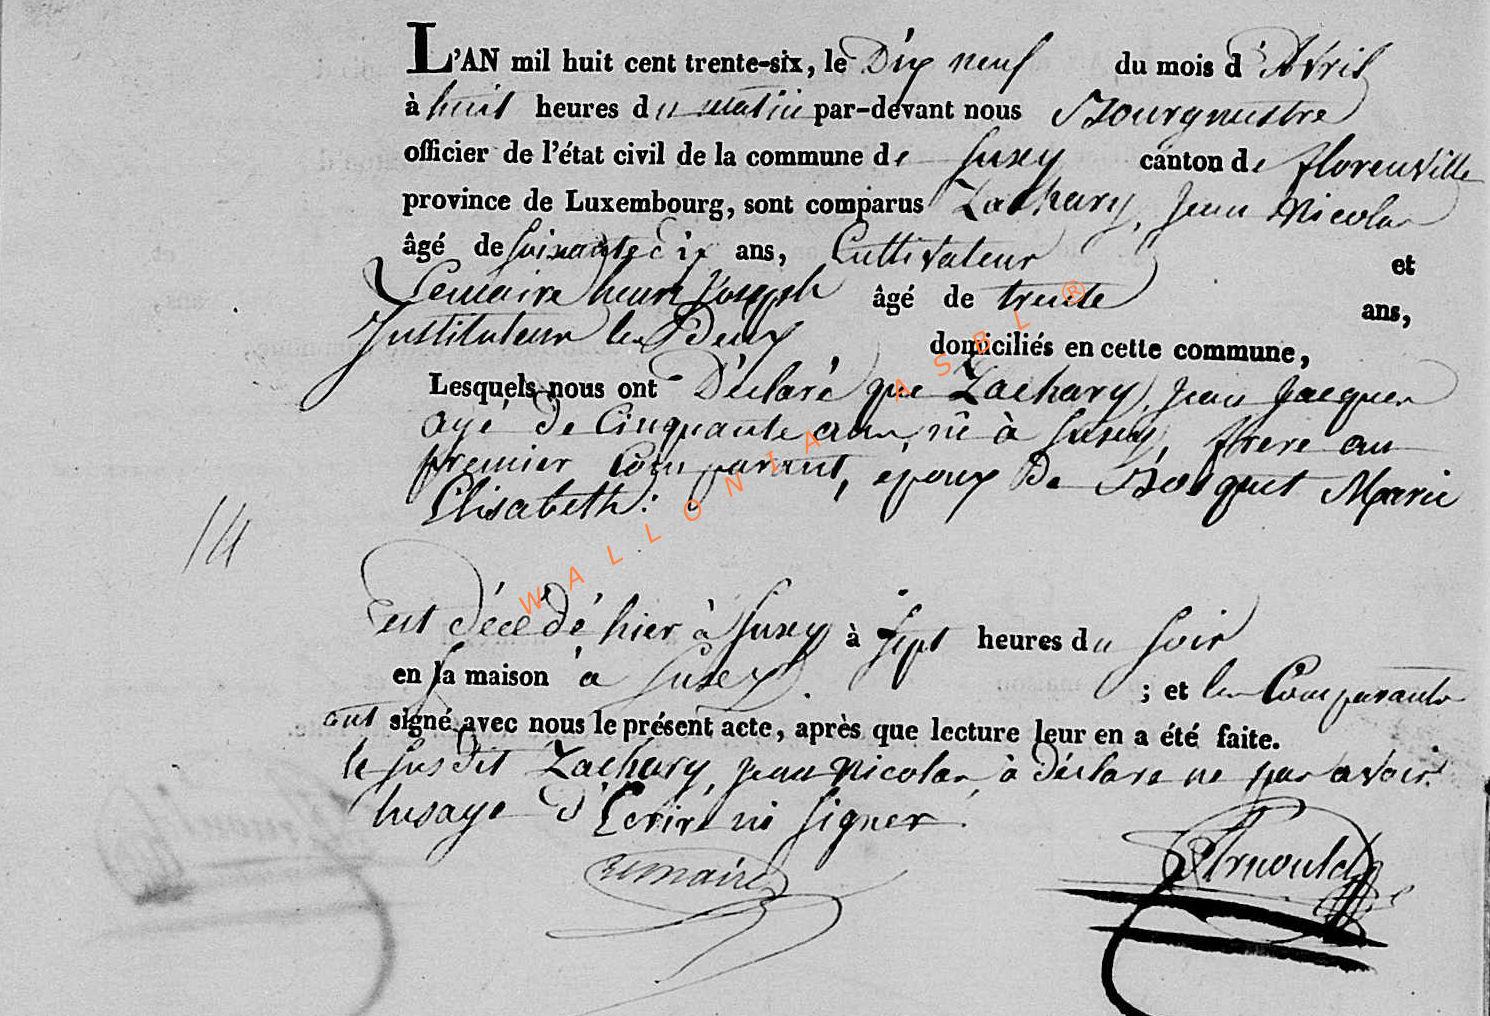 L'AN mil huit cent trente-six, le Dix neuf du mois d'Avril
à huit heures du matin par-devant nous Bourgmestre
officier de l'état civil de la commune de Suxy canton de florenville
province de Luxembourg, sont comparus Zachary, Jean Nicolas
âgé de soixante dix ans, Cultivateur et
Lemaire henri Joseph âgé de trente ans,
Instituteur les Deux domiciliés en cette commune,
Lesquels nous ont Déclaré que Zachary, Jean Jacques
agé de Cinquante ans, né à Suxy, frere au
premier Comparant, époux De Bosquet Marie
Elisabeth:
14
est décédé hier à Suxy à sept heures du soir
en sa maison à Suxy. ; et les Comparants
ont signé avec nous le présent acte, après que lecture leur en a été faite.
le susdit Zachary, Jean Nicolas, à déclaré ne pas avoir
lusage d'Ecrire ni signer.
Lemaire Arnould
WALLONIA ASBL ®